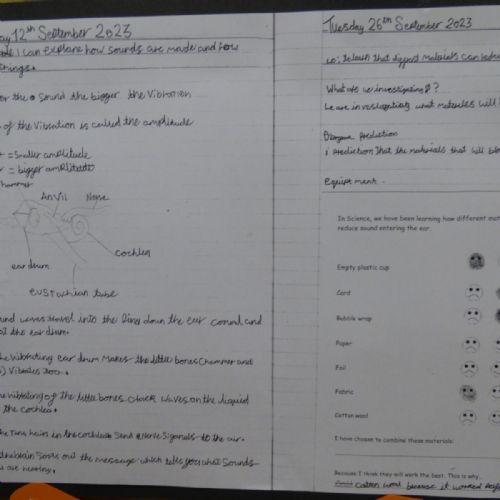 ay 12th September 2023
I can explane how sounds are made and how
things.
or the sound the bigger the Vibration
of the Vibration is called the amplitude
= Smaller amplitude
= bigger amplitude
hammer
Anvil
Nerve
cochlea
ear drum
eustachian tube
ound waves travel into the down the ear and
at the ear drum.
he vibrating ear drum makes the little bones (hammer and
) Vibrate too.
he vibrating of the little bones waves on the liquid
the cochlea.
he hairs in the cochlea Send nerve Signals to the
the brain out the message which tells you what Sounds
ou are hearing.
Tuesday 26th September 2023
Lo: to learn that materials can
What are we investigating?
We are investigating what materials will
prediction
I prediction that the materials that will
equiptment.
In Science, we have been learning how different mat
reduce sound entering the ear.
Empty plastic cup
Card
Bubble wrap
Paper
Foil
Fabric
Cotton wool
I have chosen to combine these materials:
Because I think they will work the best. This is why.
Cotton wool because it worked